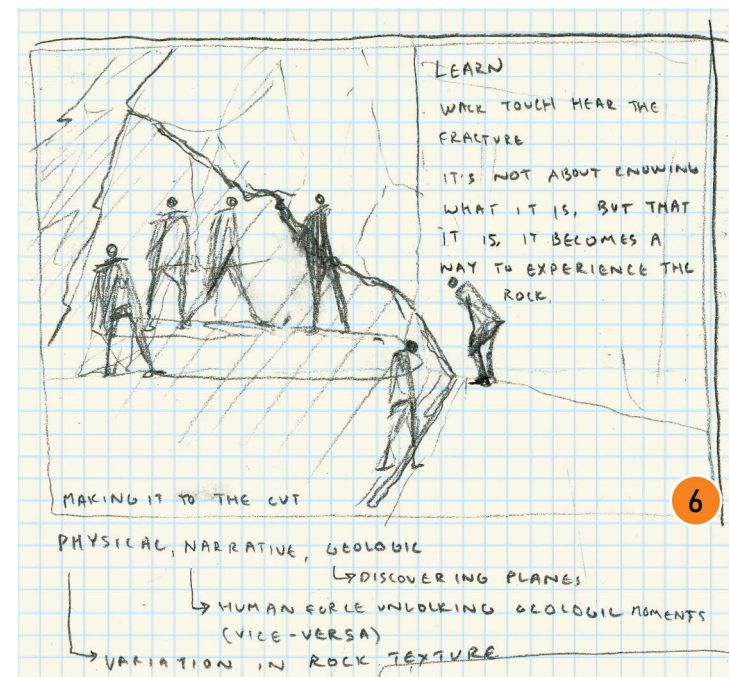 LEARN
WALK TOUCH HEAR THE
FRACTURE
IT'S NOT ABOUT KNOWING
WHAT IT IS, BUT THAT
IT IS, IT BECOMES A
WAY TO EXPERIENCE THE
ROCK.
MAKING IT TO THE CUT
6
PHYSICAL, NARRATIVE, GEOLOGIC
DISCOVERING PLANES
HUMAN FORCE UNLOCKING GEOLOGIC MOMENTS
(VICE-VERSA)
VARIATION IN ROCK TEXTURE